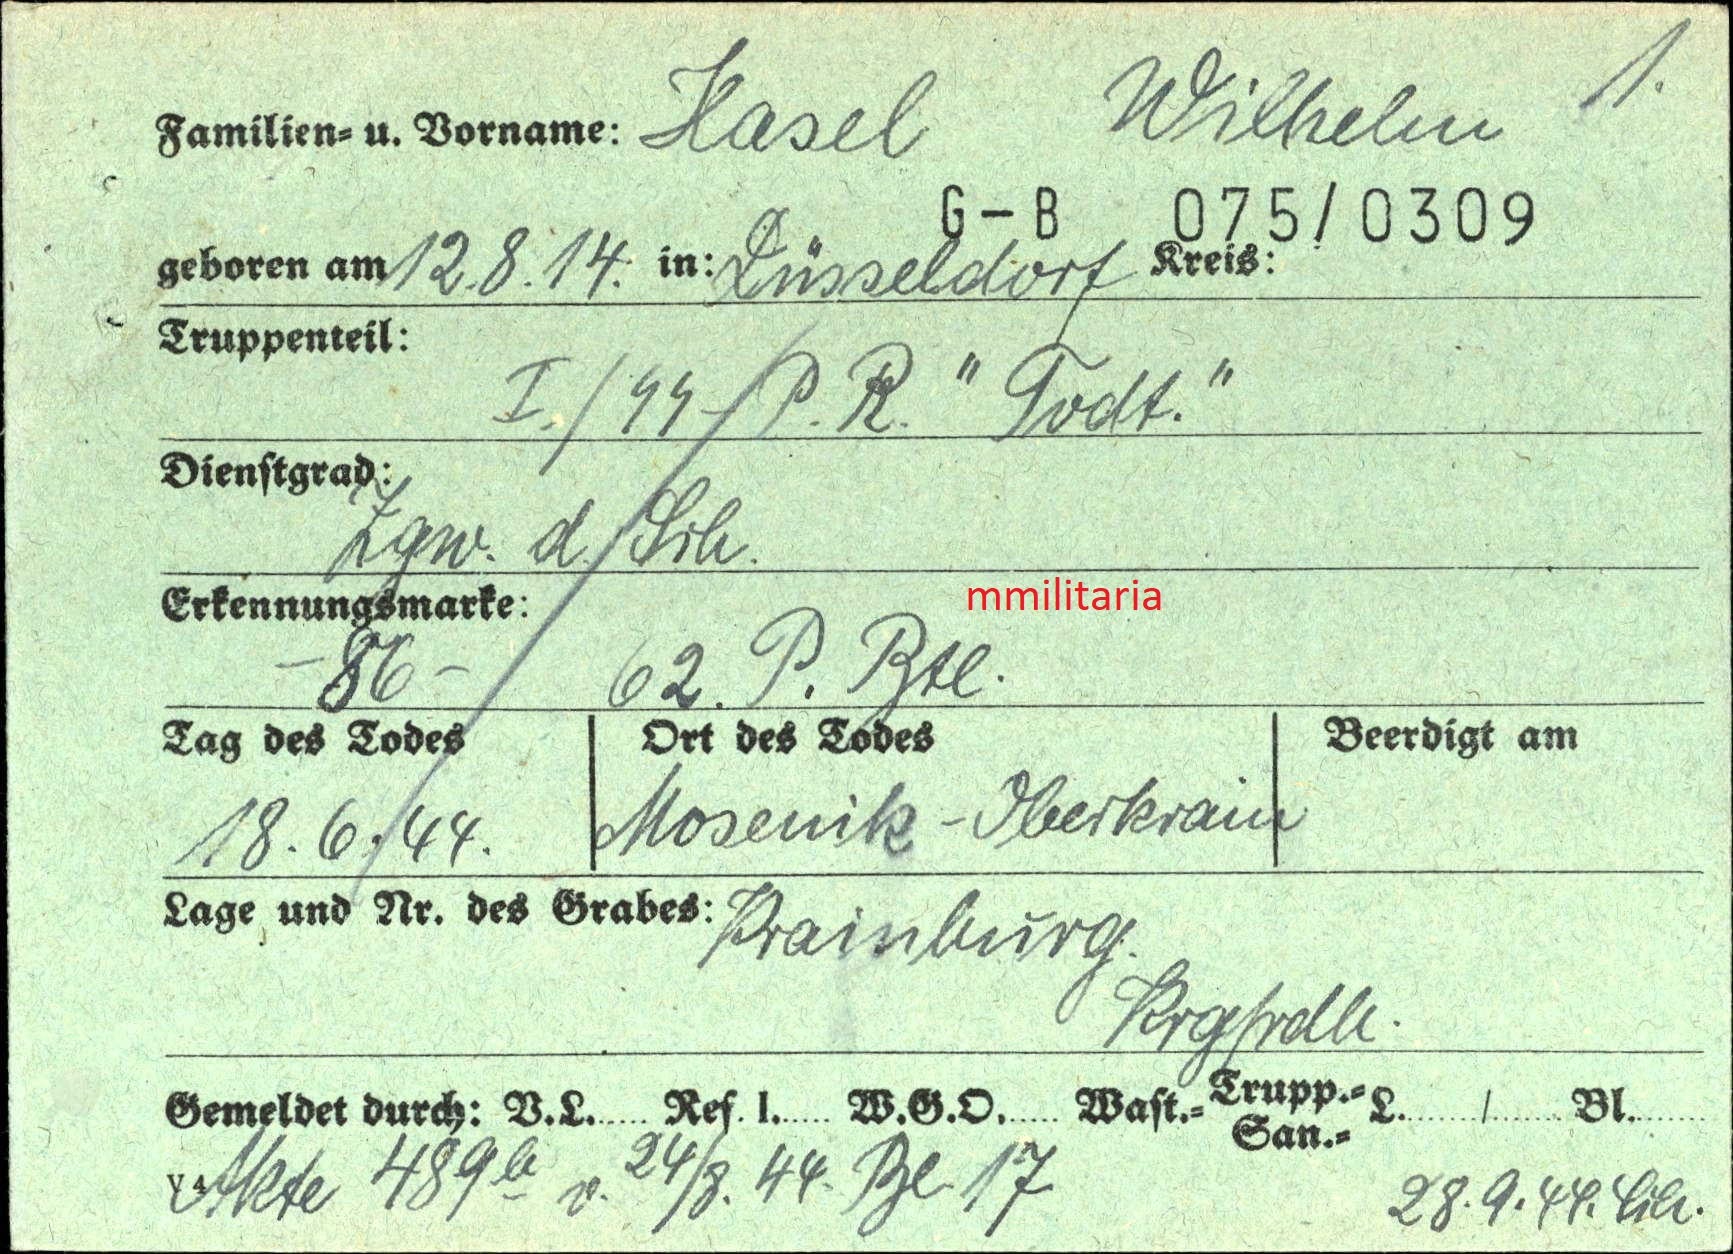 1.
Familien= u. Vorname: Hasel Wilhelm
G-B 075/0309
geboren am 12.8.14. in: Düsseldorf Kreis:
Truppenteil:
I./44-P.R. "Todt."
Dienstgrad:
Zgw. d. Sch.
Erkennungsmarke:
-86- 62. P. Btl.
mmilitaria
Tag des Todes Ort des Todes Beerdigt am
18.6.44. Mosenik-Oberkrain
Lage und Nr. des Grabes: Krainburg.
Krgfrdh.
Gemeldet durch: V.L...... Ref. I...... W.G.O...... Wast.= Trupp.= L......../........ Bl.........
San.=
V 4 Akte 489b v. 24/8. 44. Bl. 17
28.9.44.